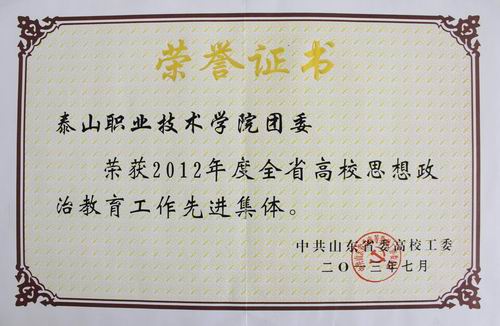 荣誉证书
泰山职业技术学院团委
荣获2012年度全省高校思想政
治教育工作先进集体。
中共山东省委高校工委
二〇一三年七月